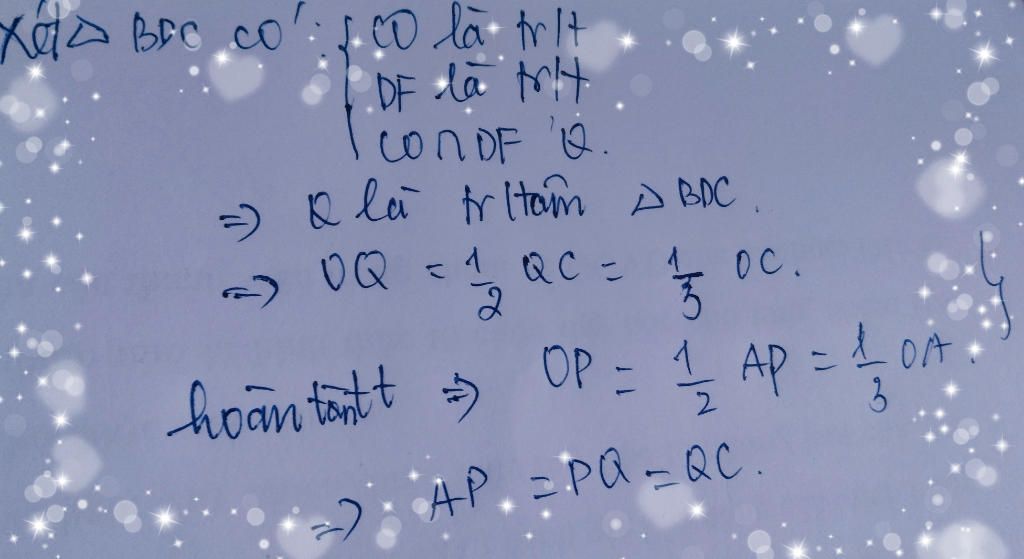 Xét △ BDC có : { CO là tr/t
DF là tr/t
CO ∩ DF 'Q.
=> Q là tr/tâm △ BDC.
=> OQ = 1/2 QC = 1/3 OC.
hoàn toàn tt => OP = 1/2 AP = 1/3 OA. }
=> AP = PQ = QC.